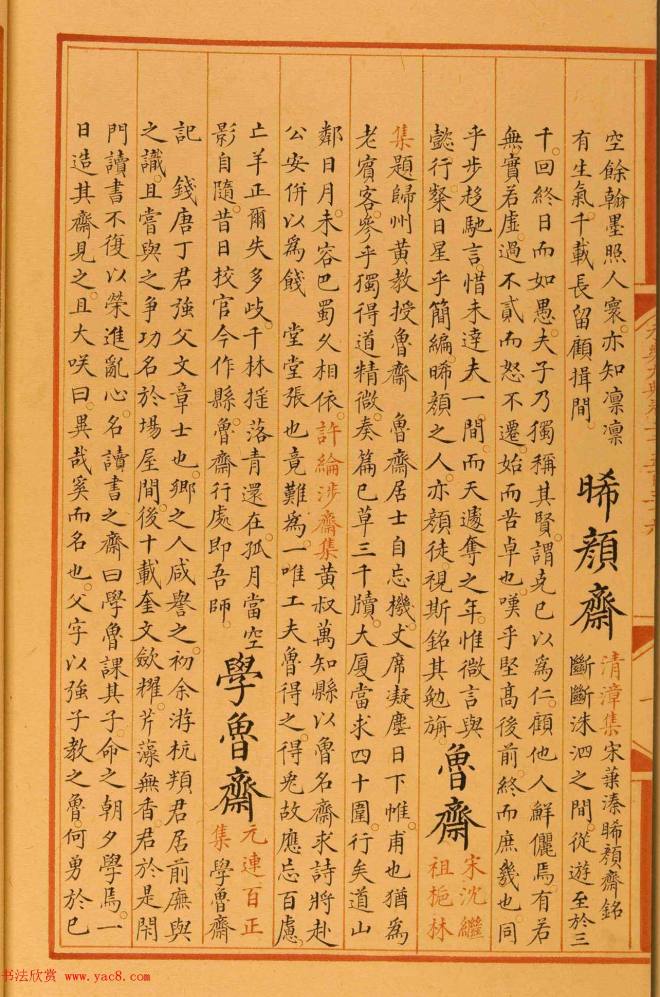 空餘翰墨照人寰亦知凜凜
有生氣千載長留顧揖間
睎顏齋
清漳集宋葉湊睎顏齋銘
斷斷洙泗之間從遊至於三
千回終日而如愚夫子乃獨稱其賢謂克己以為仁顧他人鮮儷焉有若
無實若虛過不貳而怒不遷始而苦卓也嘆乎堅髙後前終而庶幾也同
乎步趍馳言惜未達夫一間而天遽奪之年惟微言與
懿行粲日星乎簡編睎顏之人亦顏徒視斯銘其勉旃
魯齋
宋沈繼
祖梔林
集題歸州黃教授魯齋　魯齋居士自忘機丈席凝塵日下帷甫也猶為
老賓客參乎獨得道精微奏篇已草三千牘大厦當求四十圍行矣道山
鄰日月未容巴蜀久相依許綸涉齋集黃叔萬知縣以魯名齋求詩將赴
公安併以為餞　堂堂張也竟難為一唯工夫魯得之得兔故應忘百慮
亡羊正爾失多歧千林摇落青還在孤月當空
影自隨昔日校官今作縣魯齋行處即吾師
學魯齋
元連百正
集學魯齋
記　錢唐丁君強父文章士也鄉之人咸譽之初余游杭類君居前廡與
之識且嘗與之爭功名於場屋間後十載奎文歛耀芹藻無香君於是閉
門讀書不復以榮進亂心名讀書之齋曰學魯課其子命之朝夕學焉一
日造其齋見之且大咲曰異哉奚而名也父字以強子教之魯何勇於已
书法欣赏 www.yac8.com